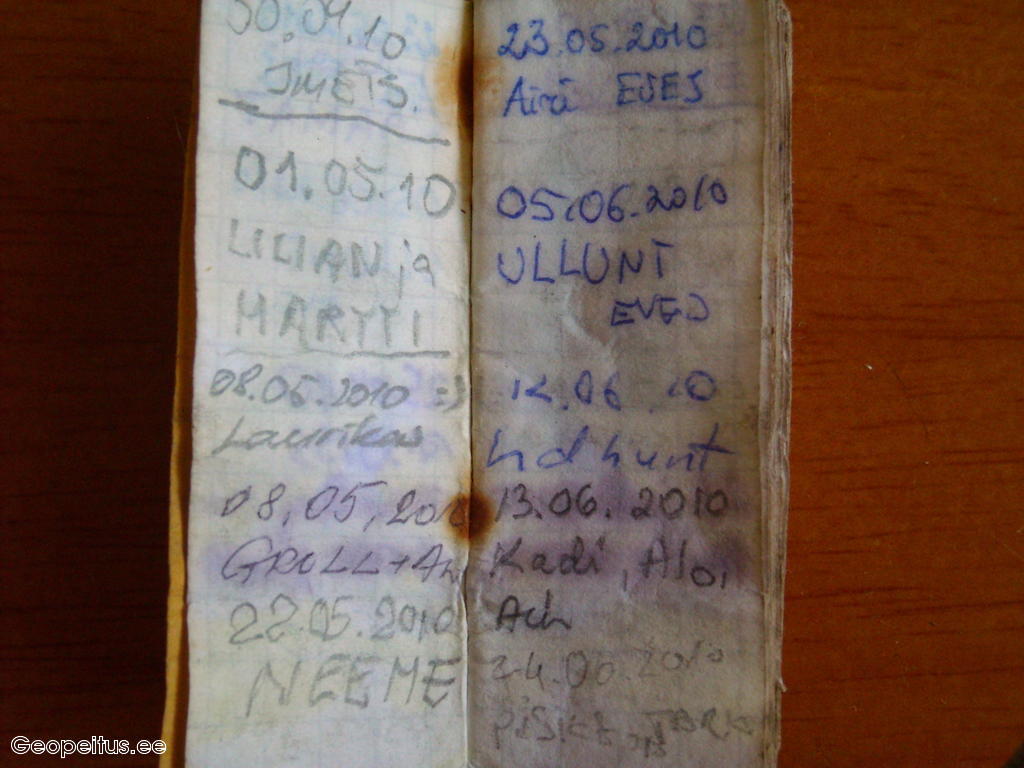 30.04.10
IMETS.
01.05.10
LILIAN ja
MARTTI
08.05.2010 =)
Laurikas
08.05.2010
GROLL+An
22.05.2010
NEEME
23.05.2010
Airi
05.06.2010
ULLUNT
.06.10
hunt
13.06.2010
Kadi, Alo,
24.06.2010
Geopeitus.ee